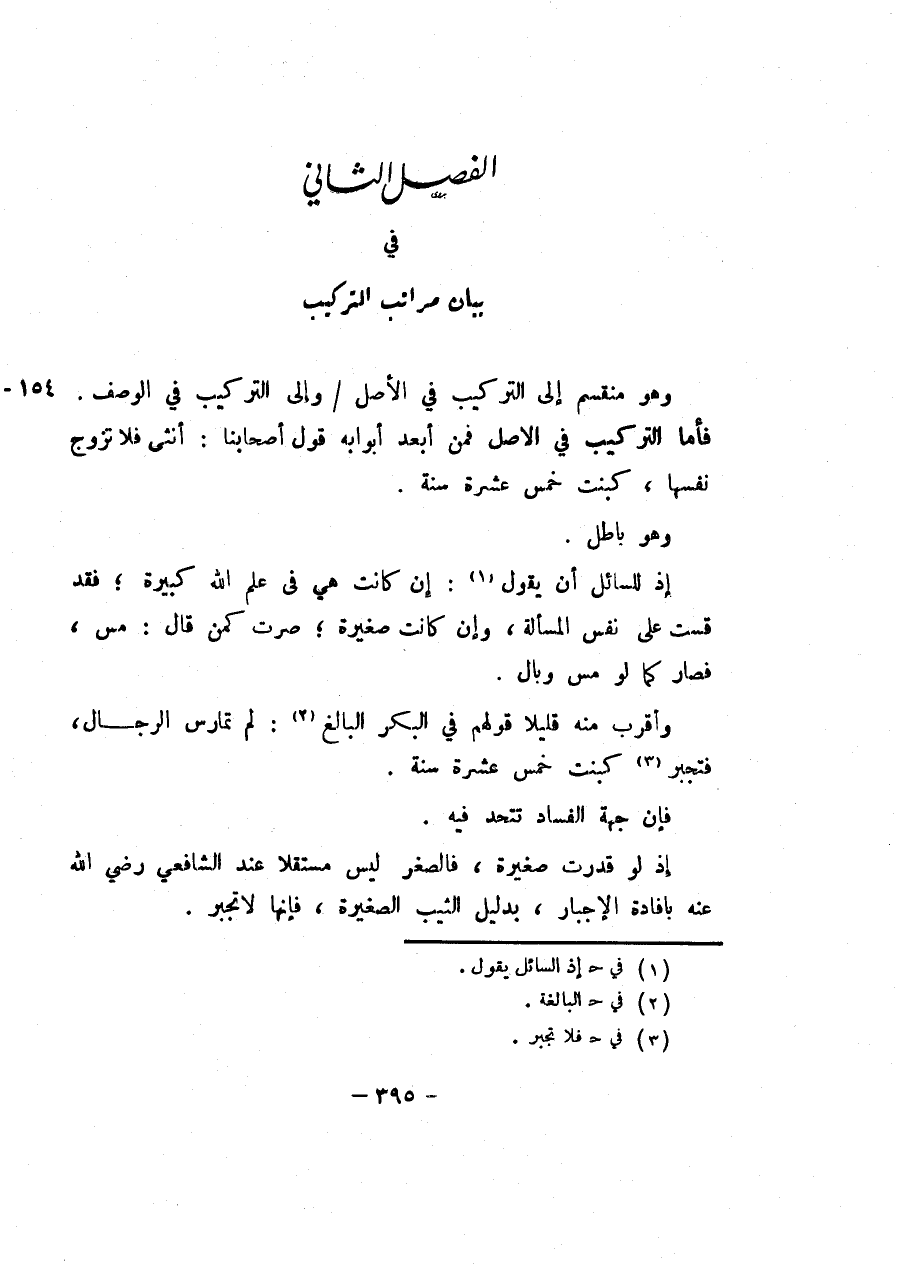 الفصل الثاني
في
بيان مراتب التركيب
وهو منقسم إلى التركيب في الأصل / وإلى التركيب في الوصف . ١٥٤-
فأما التركيب في الاصل فمن أبعد أبوابه قول أصحابنا : أنثى فلا تزوج
نفسها ، كبنت خمس عشرة سنة .
وهو باطل .
إذ للسائل أن يقول (١) : إن كانت هي في علم الله كبيرة ؛ فقد
قست على نفس المسألة ، وإن كانت صغيرة ؛ صرت كمن قال : مس ،
فصار كما لو مس وبال .
وأقرب منه قليلا قولهم في البكر البالغ (٢) : لم تمارس الرجـــال،
فتجبر (٣) كبنت خمس عشرة سنة .
فإن جهة الفساد تتحد فيه .
إذ لو قدرت صغيرة ، فالصغر ليس مستقلا عند الشافعي رضي الله
عنه بافادة الإجبار ، بدليل الثيب الصغيرة ، فإنها لا تجبر .
(١) في حـ إذ السائل يقول .
(٢) في حـ البالغة .
(٣) في حـ فلا تجبر .
- ٣٩٥ -